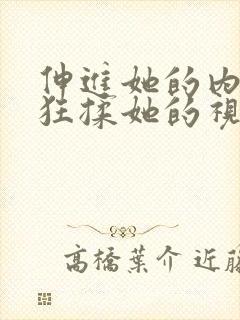 伸進她的内
狂揉她的視
高橋葉介 近藤